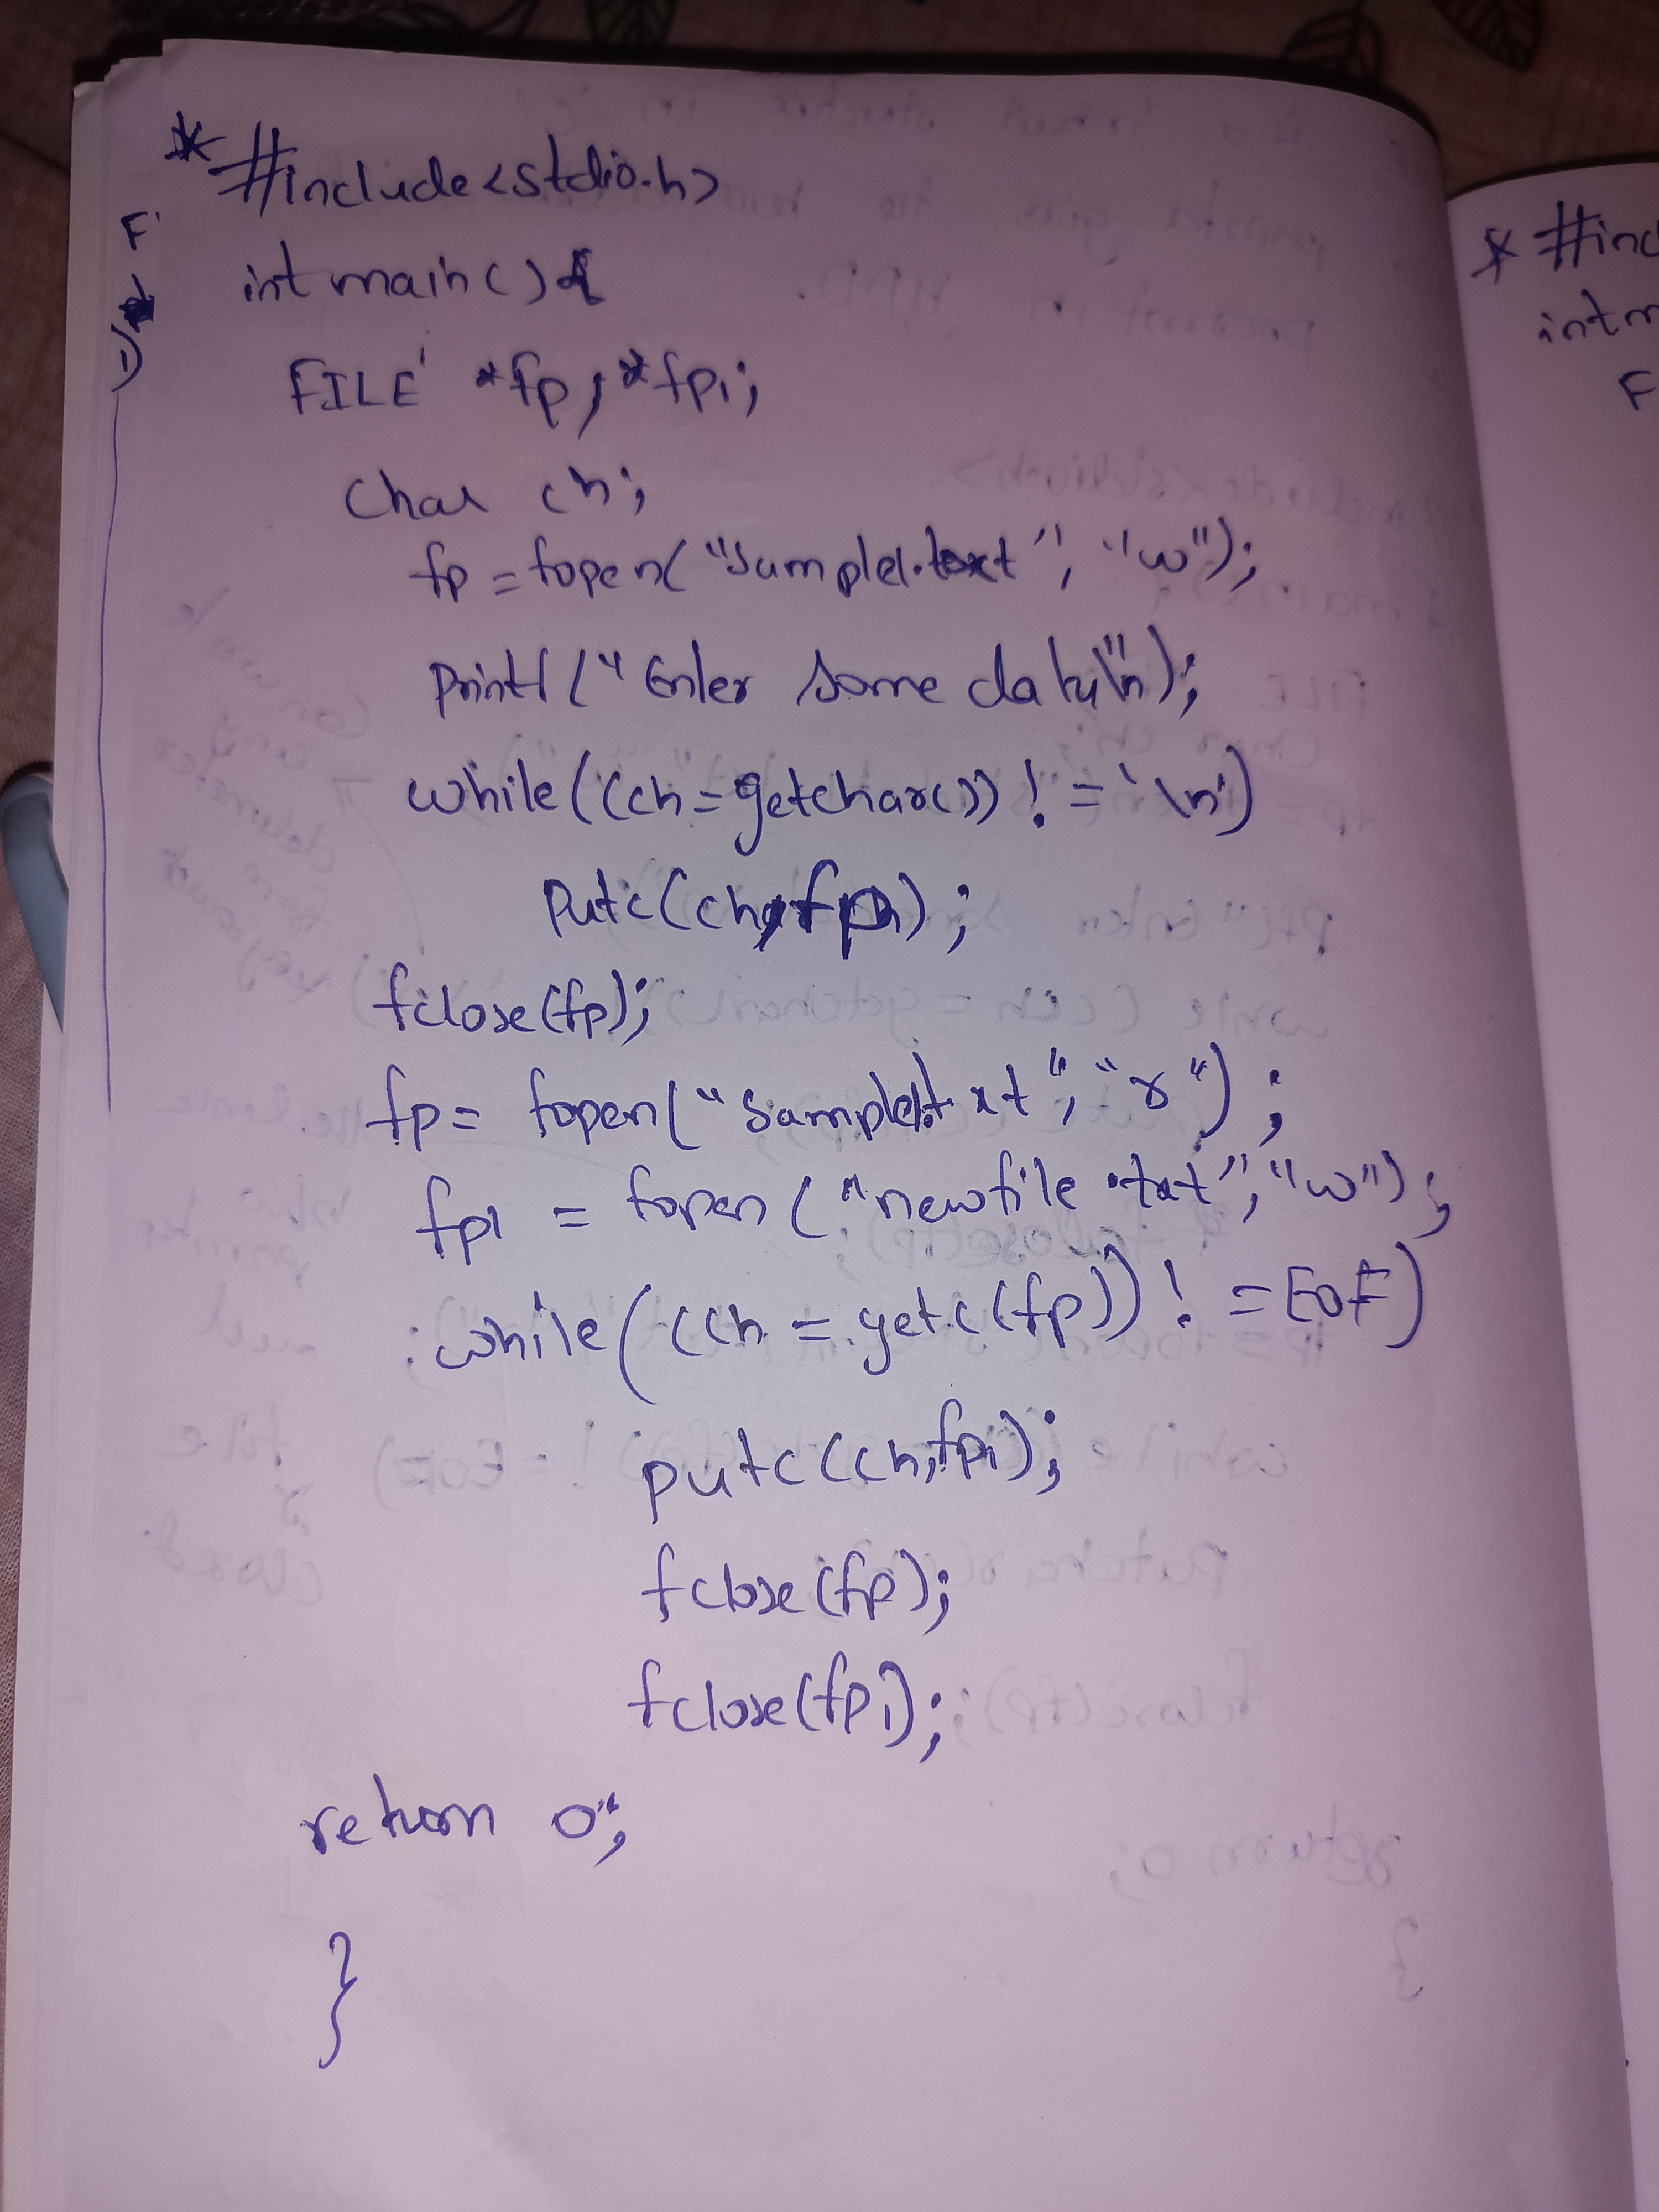 * #include<stdio.h>
int main(){
FILE *fp, *fp1;
char ch;
fp = fopen("Sample1.text", "w");
printf("Enter some data\n");
while((ch=getchar()) != '\n')
putc(ch,fp);
fclose(fp);
fp = fopen("Sample1.txt", "r");
fp1 = fopen("newfile.txt", "w");
while((ch = getc(fp)) != EOF)
putc(ch,fp1);
fclose(fp);
fclose(fp1);
return 0;
}
F
1)
* #inc
int m
F